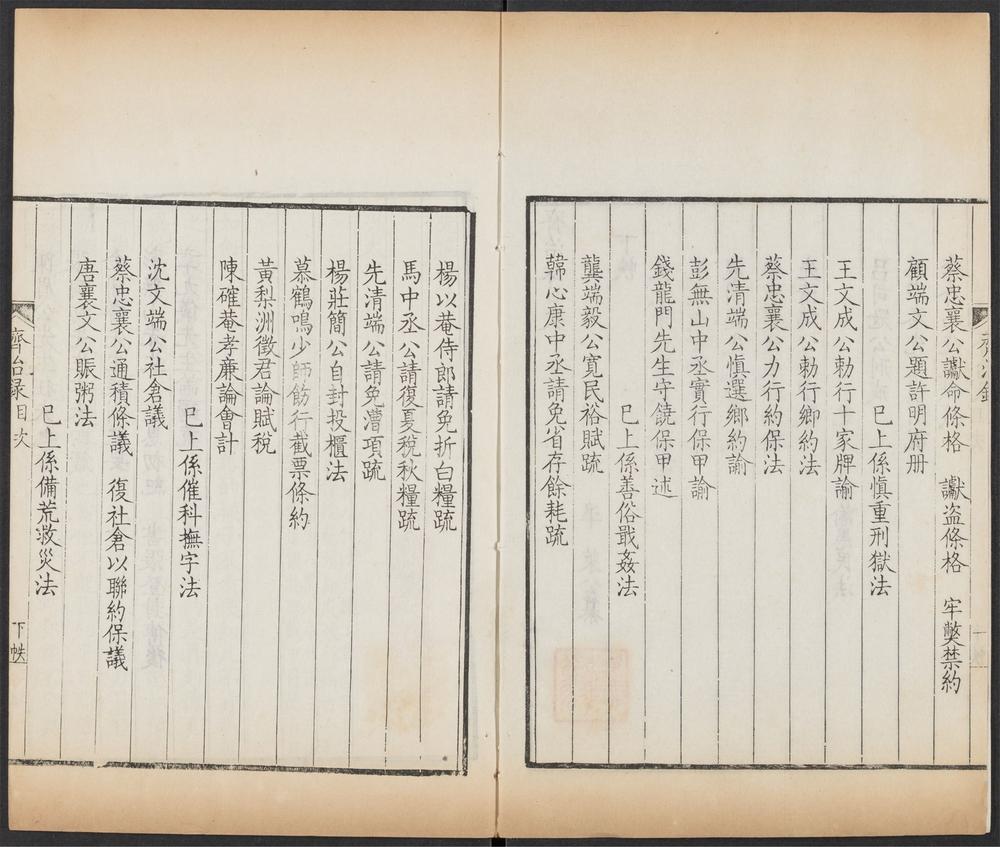 蔡忠襄公讞命條格　讞盗條格　牢獘禁約
顧端文公題許明府册
巳上係慎重刑獄法
王文成公勅行十家牌諭
王文成公勅行鄉約法
蔡忠襄公力行約保法
先清端公慎選鄉約諭
彭無山中丞實行保甲諭
錢龍門先生守饒保甲述
巳上係善俗戢姦法
龔端毅公寬民裕賦疏
韓心康中丞請免省存餘耗疏
楊以菴侍郎請免折白糧疏
馬中丞公請復夏稅秋糧疏
先清端公請免漕項疏
楊莊簡公自封投櫃法
慕鶴鳴少師飭行截票條約
黃梨洲徵君論賦稅
陳確菴孝廉論會計
巳上係催科撫字法
沈文端公社倉議
蔡忠襄公通積條議　復社倉以聯約保議
唐襄文公賑粥法
巳上係備荒救災法
齊治録目次
下帙